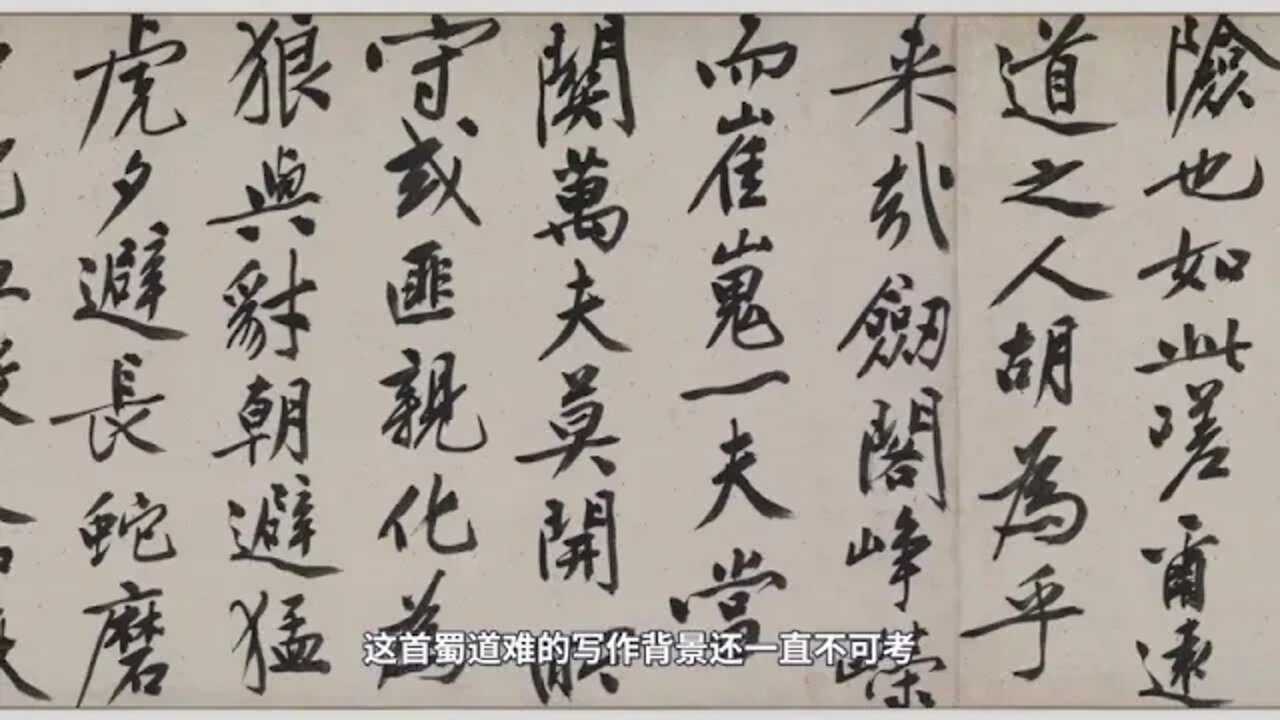 險也如此嗟爾遠
道之人胡為乎
来哉劔閣峥嶸
而崔嵬一夫當
關萬夫莫開所
守或匪親化為
狼與豺朝避猛
虎夕避長蛇磨
这首蜀道难的写作背景还一直不可考